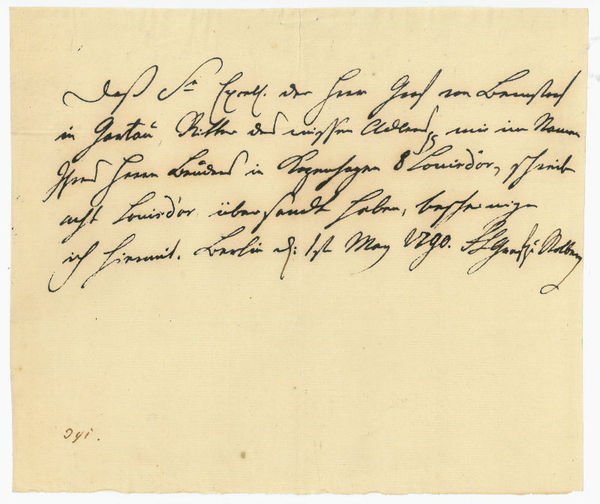 Daß Sr Excell. der Herr Graf von Bernstorf
in Gartau, Ritter des weissen Adlers, mir im Namen
Ihres Herrn Bruders in Kopenhagen 8 Louisd'or, schreib
acht Louisd'or übersandt haben, bescheinige
ich hiermit. Berlin d: 1st May 1790. FLGraf z: Stolberg
391.